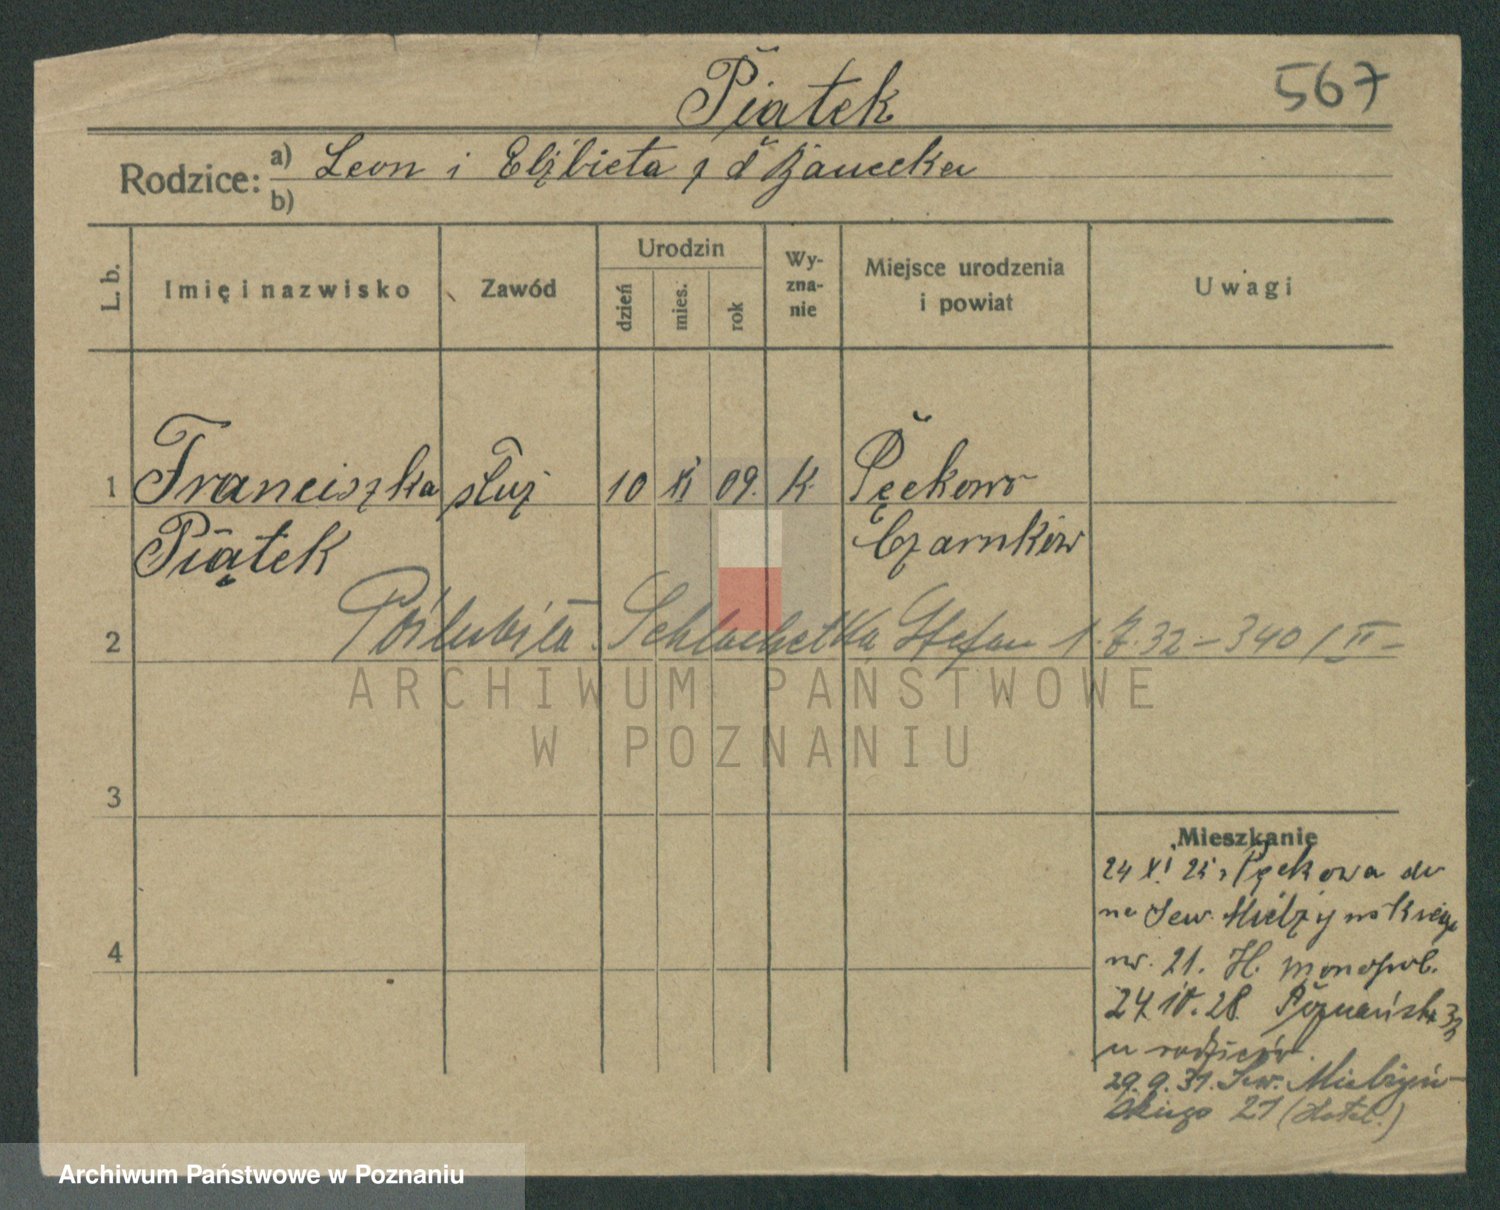 Piątek
567
Rodzice:
a) Leon i Elżbieta z d
b)
L. b.
Imię i nazwisko
Zawód
Urodzin
dzień
mies.
rok
Wy-
zna-
nie
Miejsce urodzenia
i powiat
Uwagi
1 Franciszka służ 10 XI 09. K. Pęckowo
Piątek Czarnków
2 Poślubiła Schlachetka Stefan 1.7.32 – 340/II –
3
4
Mieszkanie
24 XI 25 z Pęckowa do
na Sew. Mielżyńskiego
nr. 21. H. monopol.
24.10.28 Poznańska 33
u rodziców.
29.9.31. Sew. Mielżyń-
skiego 21 (Hotel.)
ARCHIWUM PAŃSTWOWE
W POZNANIU
Archiwum Państwowe w Poznaniu